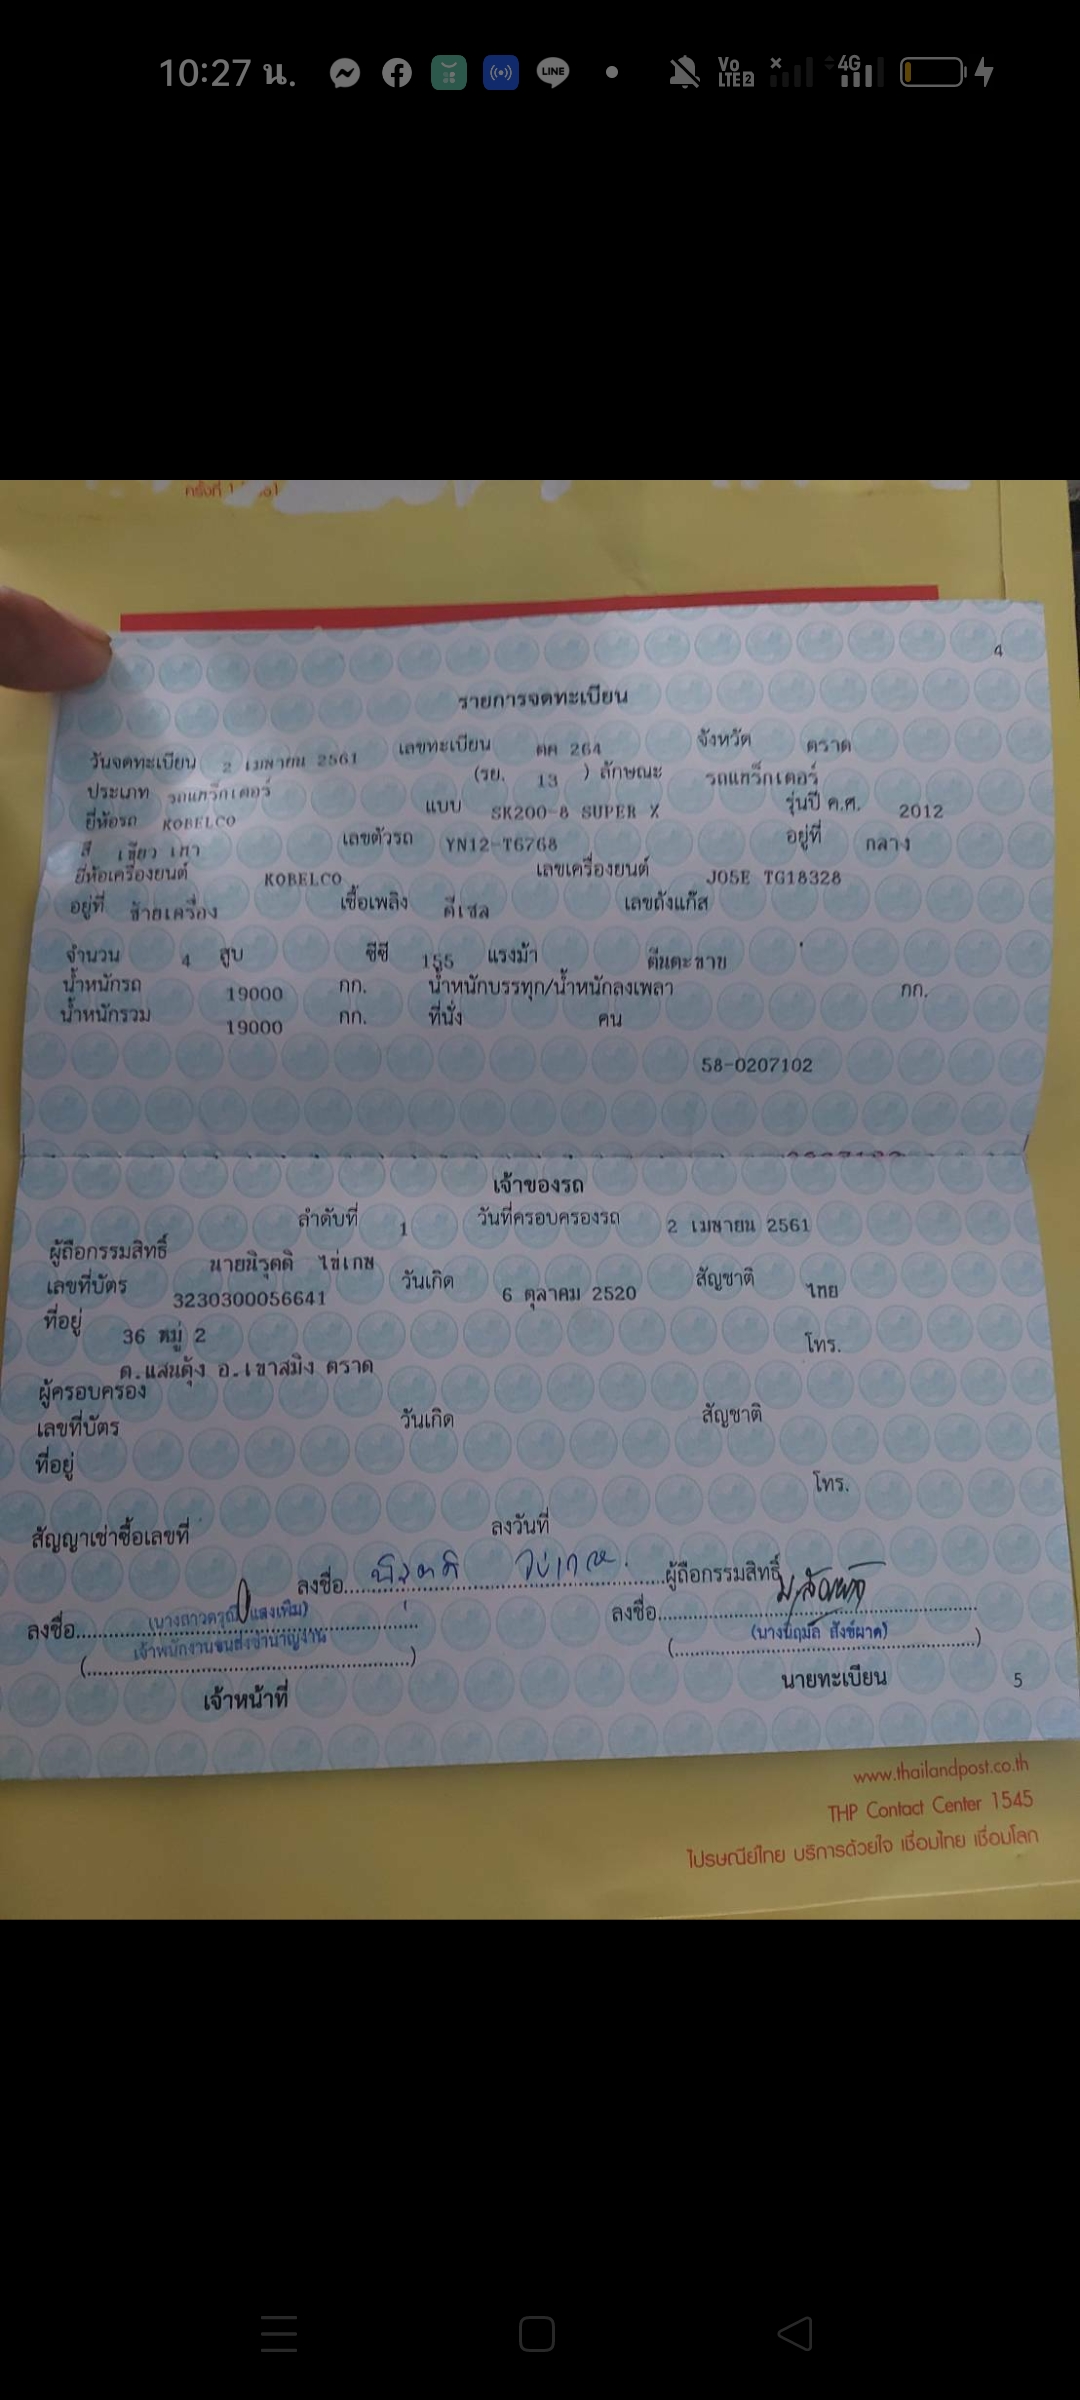 10:27 น.
LINE
Vo LTE2
4G
ครั้งที่ 1
4
รายการจดทะเบียน
วันจดทะเบียน 2 เมษายน 2561 เลขทะเบียน ตค 264 จังหวัด ตราด
ประเภท รถแทร็กเตอร์ (รย. 13 ) ลักษณะ รถแทร็กเตอร์
ยี่ห้อรถ KOBELCO แบบ SK200-8 SUPER X รุ่นปี ค.ศ. 2012
สี เขียว เทา เลขตัวรถ YN12-T6768 อยู่ที่ กลาง
ยี่ห้อเครื่องยนต์ KOBELCO เลขเครื่องยนต์ J05E TG18328
อยู่ที่ ซ้ายเครื่อง เชื้อเพลิง ดีเซล เลขถังแก๊ส
จำนวน 4 สูบ ซีซี 155 แรงม้า ตีนตะขาบ
น้ำหนักรถ 19000 กก. น้ำหนักบรรทุก/น้ำหนักลงเพลา กก.
น้ำหนักรวม 19000 กก. ที่นั่ง คน
58-0207102
เจ้าของรถ
ลำดับที่ 1 วันที่ครอบครองรถ 2 เมษายน 2561
ผู้ถือกรรมสิทธิ์ นายนิรุตติ ไข่เกษ
เลขที่บัตร 3230300056641 วันเกิด 6 ตุลาคม 2520 สัญชาติ ไทย
ที่อยู่ 36 หมู่ 2 โทร.
ต.แสนตุ้ง อ.เขาสมิง ตราด
ผู้ครอบครอง
เลขที่บัตร วันเกิด สัญชาติ
ที่อยู่
โทร.
สัญญาเช่าซื้อเลขที่ ลงวันที่
ลงชื่อ นิรุตติ ไข่เกษ ผู้ถือกรรมสิทธิ์
ลงชื่อ ลงชื่อ
เจ้าพนักงานขนส่งชำนาญงาน (นางนฤมัล สังข์ผาด)
เจ้าหน้าที่ นายทะเบียน
5
www.thailandpost.co.th
THP Contact Center 1545
ไปรษณีย์ไทย บริการด้วยใจ เชื่อมไทย เชื่อมโลก